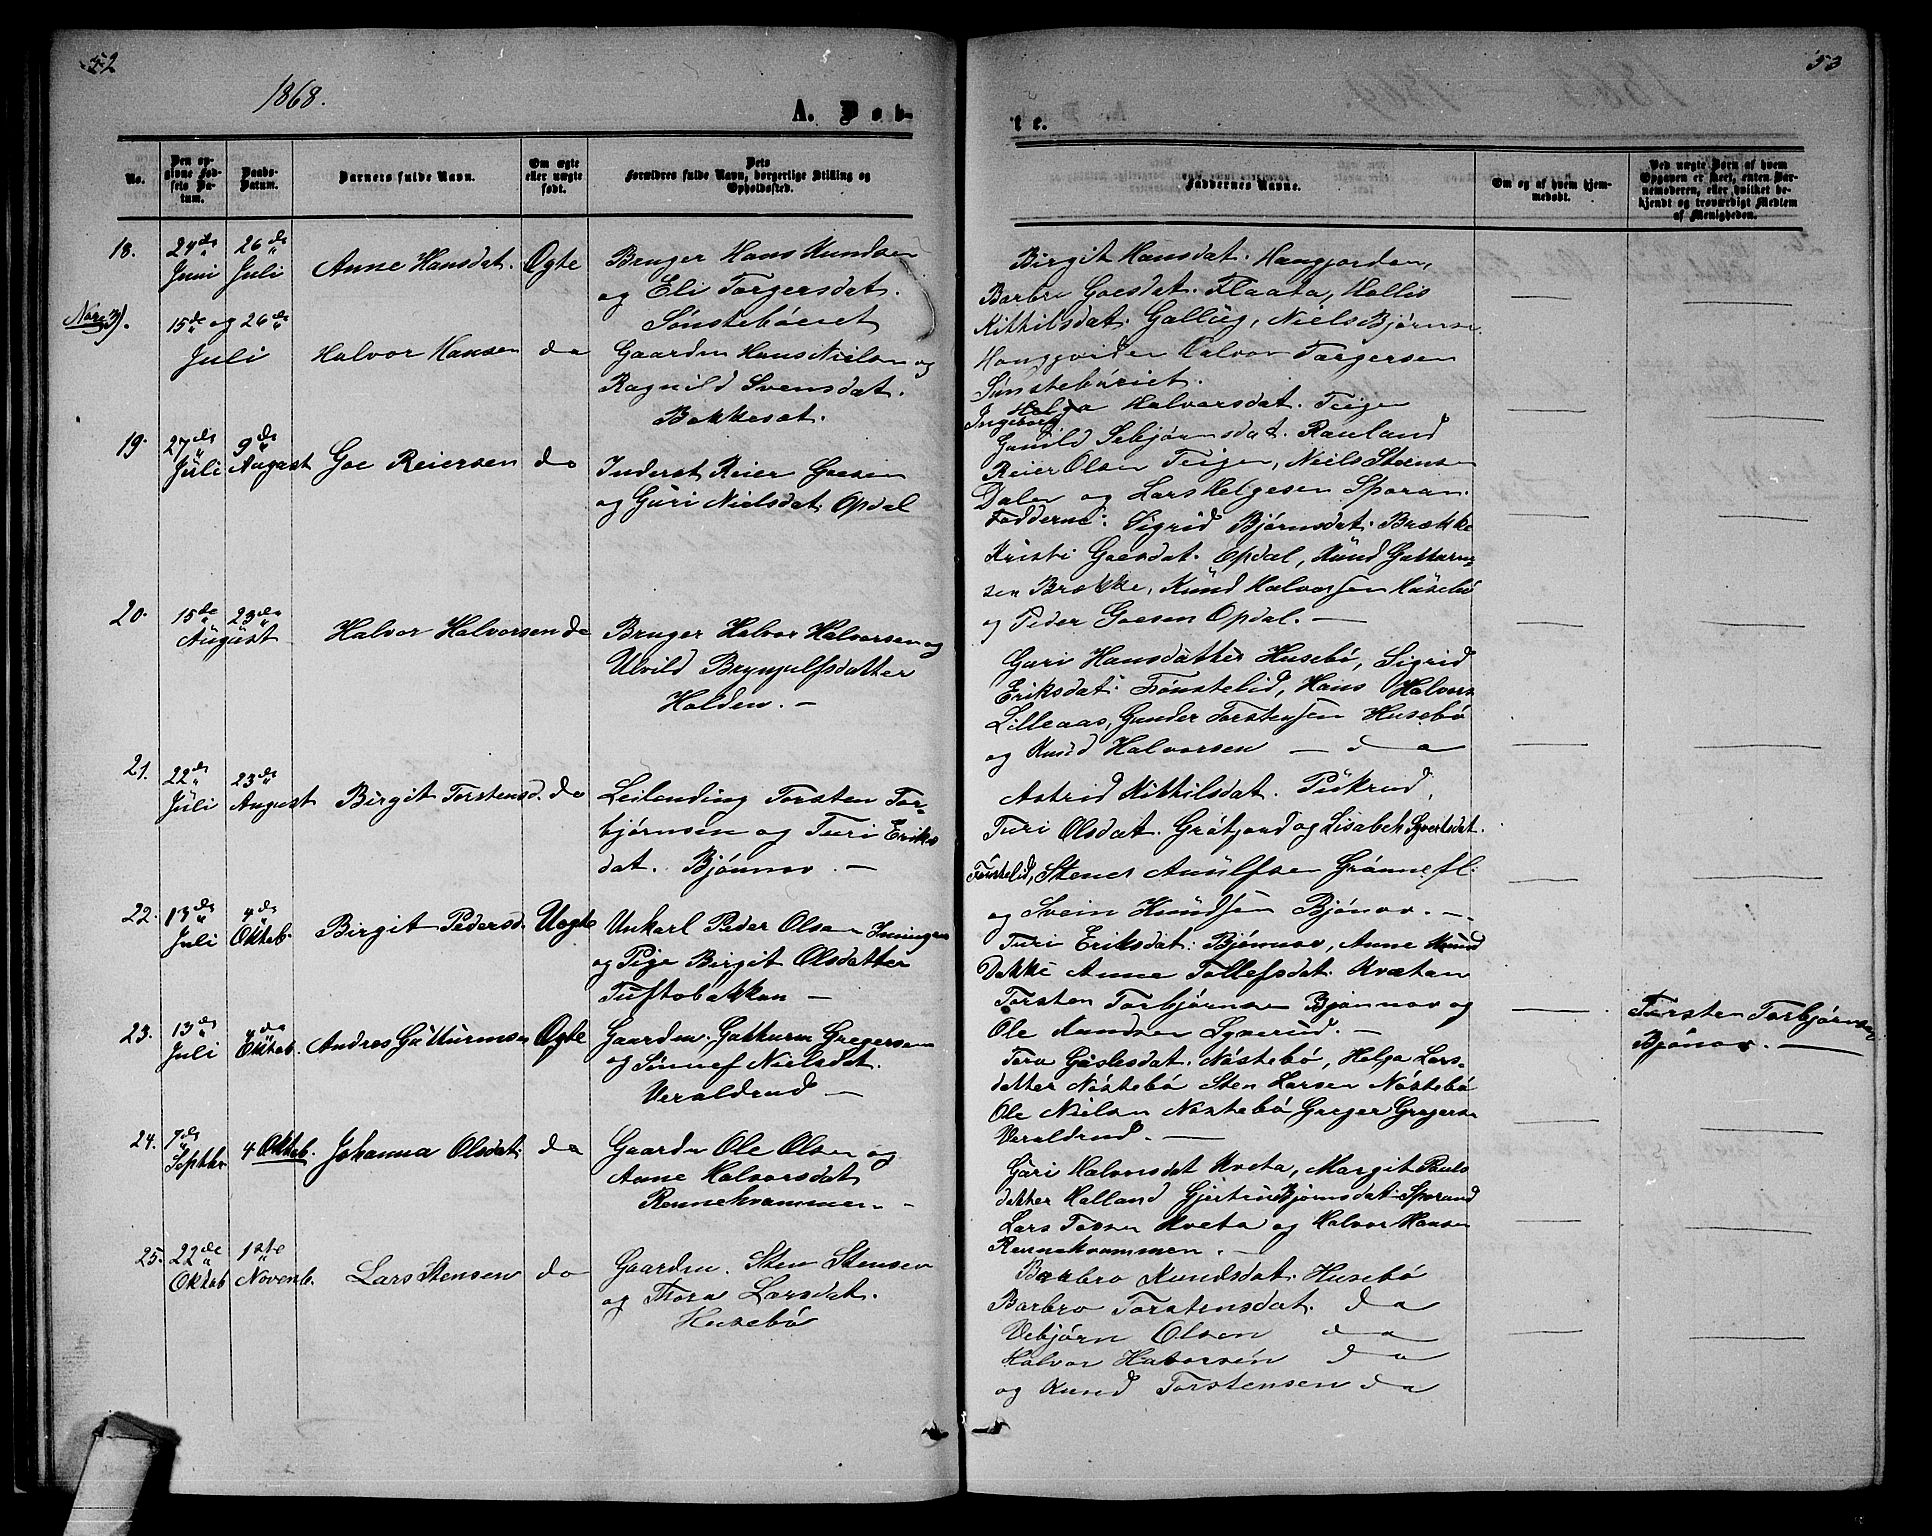 52
1868.
A. Døb-
No.
Den opgivne Fødsels Datum.
Daabs-Datum.
Barnets fulde Navn.
Om ægte eller uægte født.
Dets Forældres fulde Navn, borgerlige Stilling og Opholdssted.
18.
24de Juni
26de Juli
Anne Hansdat.
Ægte
Bruger Hans Knudsen
og Eli Torgersdat.
Sønstebøeiet
15de og 26de
Juli
Halvor Hansen
do
Gaardm Hans Nielsen og
Ragnild Svensdat.
Bakkesat.
19.
27de Juli
9de August
Goe Reiersen
do
Inderst Reier Goesen
og Guri Nielsdat. Opdal
20.
15de
23de
August
Halvor Halvorsen
do
Bruger Halvor Halvorsen og
Ulvild Brynjulfsdatter
Holden. —
21.
22de Juli
23de August
Birgit Torstensd.
do
Leilending Torsten Tor-
bjørnsen og Turi Eriks
dat. Bjønnov. —
22.
13de Juli
4de Oktob.
Birgit Pedersd.
Uægte
Unkarl Peder Olsen
og Pige Birgit Olsdatter
Tuftobakken —
23.
13de Juli
4de Oktob.
Andres Gutturmsen
Ægte
Gaardm. Gutturm Gregersen
og Sinnef Nielsdat.
Veraldrud —
24.
7de Septbr
4 Oktob.
Johanna Olsdat.
do
Gaardm Ole Olsen og
Anne Halvorsdat
Rennehvammen. —
25.
22de Oktob
1ste Novemb.
Lars Stensen
do
Gaardm. Sten Stensen
og Thora Larsdat.
Husebø
53
te.
Faddernes Navne.
Om og af hvem hjemmedøbt.
Ved uægte Børn af hvem Opgaven er skeet, enten Barnemoderen, eller hvilket bekjendt og troværdigt Medlem af Menigheden.
Birgit Hansdat. Haugjorden,
Barbro Goesdat. Flaata, Hollis
Kittilsdat. Gallug, Niels Bjørnse.
Haugjorden Halvor Torgersen
Sønstebøeiet.
Helga Halvorsdat. Teigen
Ingeborg
Gunild Sebjørnsdat. Rauland
Reier Olsen Teigen, Niels Stensen
Dalen og Lars Helgesen Sporan.
Fadderne: Sigrid Bjørnsdat. Brække
Kristi Goesdat. Opdal, Knud Gutturm-
sen Brække, Knud Halvorsen Husebø
og Peder Goesen Opdal. —
Guri Hansdatter Husebø, Sigrid
Eriksdat. Tønstelid, Hans Halvors
Lilleaas, Gunder Torstensen Husebø
og Knud Halvorsen — do
Astrid Kittilsdat. Pukrud,
Turi Olsdat. Gråfjord og Lisabeth Syvertsdat.
Tønstelid, Stener Anulfsen Grønnefl:
og Svein Knudsen Bjønov. —
Turi Eriksdat. Bjønnov, Anne Knud
Dokki Anne Tollefsdat. Kvætan
Torsten Torbjørnsen Bjønnov og
Ole Amundsen Syverud. —
Torsten Torbjørnsen
Bjønov. —
Tora Gislesdat. Nøstebø, Helga Lars-
datter Nøstebø Sten Larsen Nøstebø
Ole Nielsen Nøstebø Greger Gregersen
Veraldrud. —
Guri Halvorsdat Kveta, Margit Pauls
datter Halland Gjertrud Bjørnsdat. Sporand
Lars Tovsen Kveta og Halvor Hansen
Rennehvammen. —
Barbro Knudsdat. Husebø
Barbro Torstensdat. do
Vebjörn Olsen do
Halvor Halvorsen do
og Knud Torstensen do